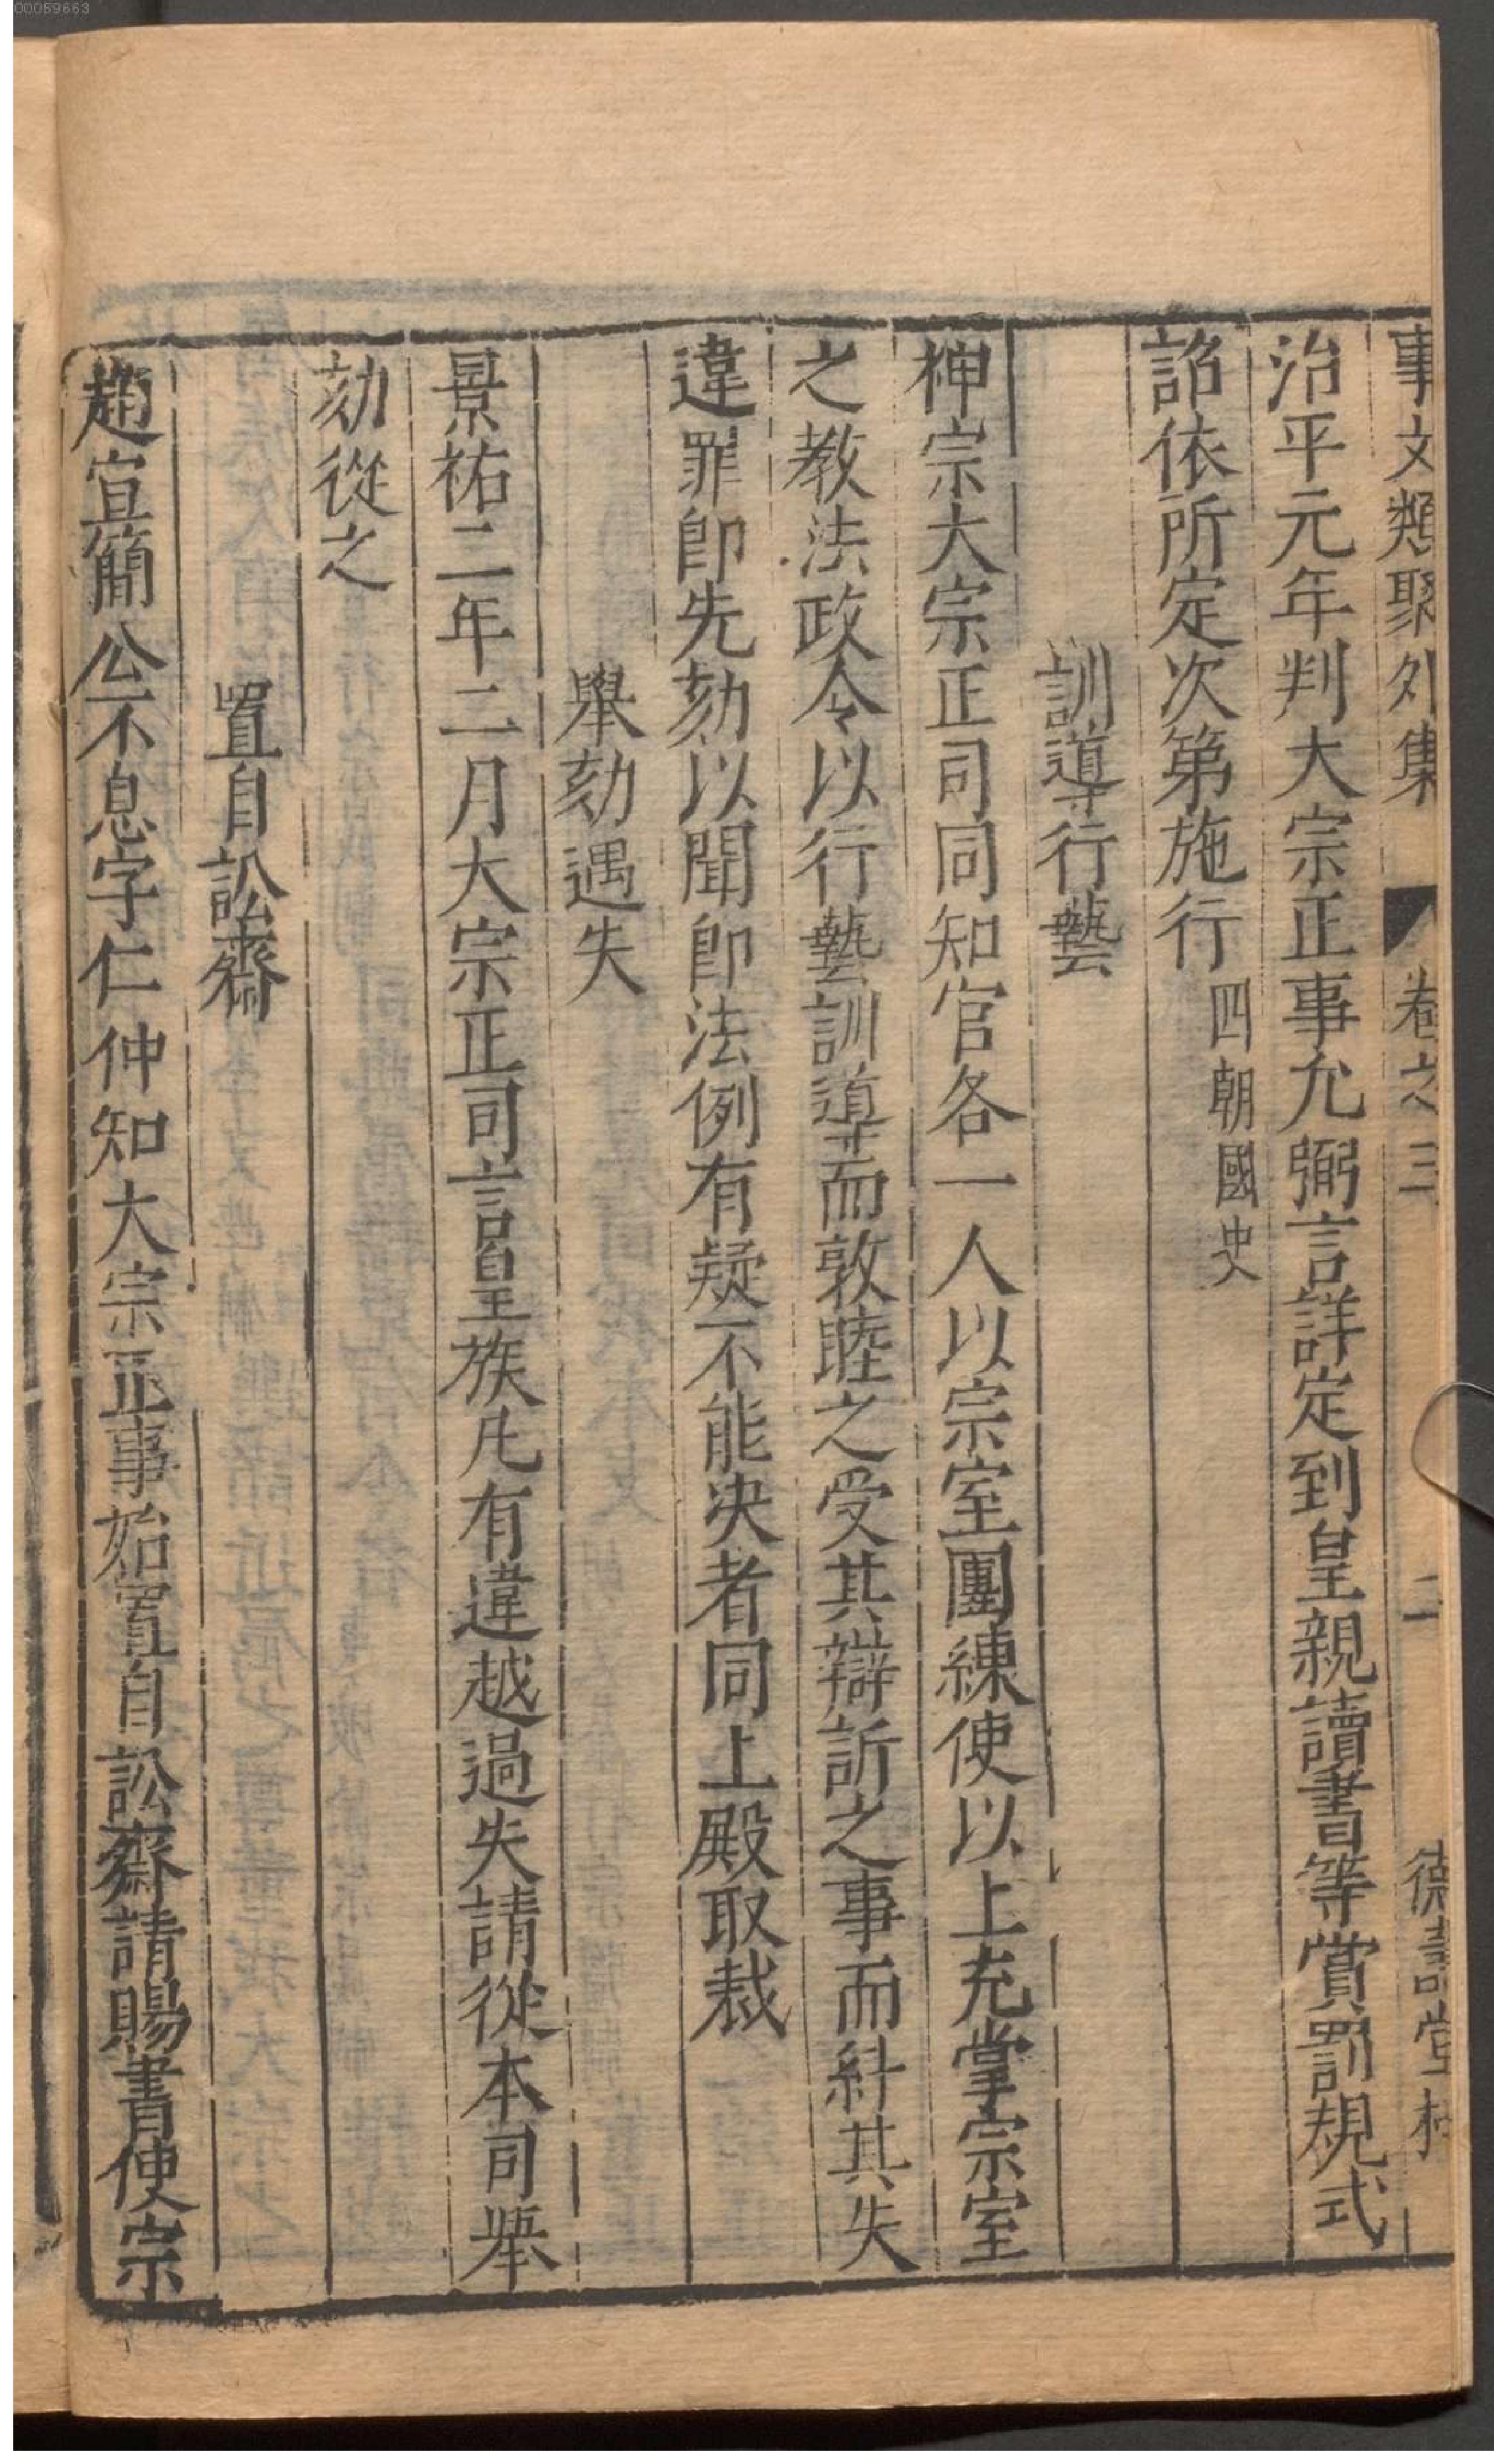 00059663
事文類聚外集 卷之三 二 德壽堂梓
治平元年判大宗正事允弼言詳定到皇親讀書等賞罰規式
詔依所定次第施行四朝國史
訓導行藝
神宗大宗正司同知官各一人以宗室團練使以上充掌宗室
之教法政令以行藝訓導而敦睦之受其辯訴之事而糾其失
違罪卽先劾以聞卽法例有疑不能决者同上殿取裁
舉劾遇失
景祐二年二月大宗正司言皇族凡有違越過失請從本司舉
劾從之
置自訟齋
趙宣簡公不息字仁仲知大宗正事始置自訟齋請賜書使宗